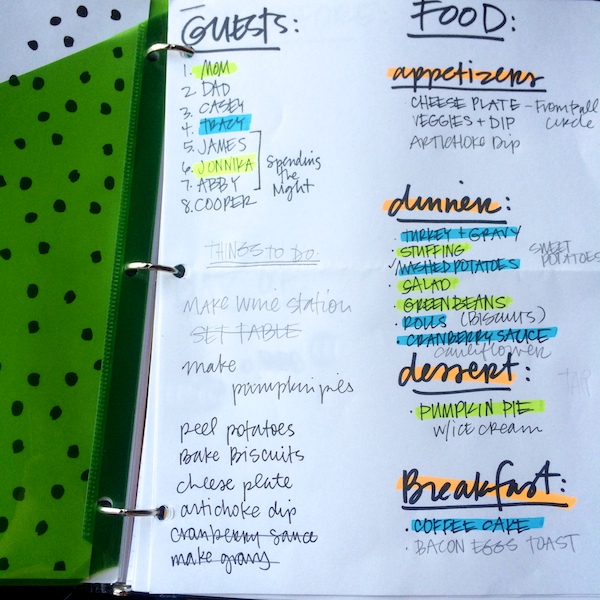 GUESTS:
1. MOM
2. DAD
3. CASEY
4. TRACY
5. JAMES
6. JONNIKA
7. ABBY
8. COOPER
Spending
the
Night
THINGS TO DO
Make wine station
SET TABLE
make
pumpkin pies
peel potatoes
Bake Biscuits
cheese plate
artichoke dip
cranberry sauce
make gravy
FOOD:
appetizers
· CHEESE PLATE - From Ball
VEGGIES + DIP Circle
ARTICHOKE Dip
dinner:
· TURKEY + GRAVY
· STUFFING
MASHED POTATOES
· SALAD
· GREEN BEANS
· ROLLS (BISCUITS)
· CRANBERRY SAUCE
cauliflower
SWEET
POTATOES
dessert:
· PUMPKIN PIE
W/ICE CREAM
Breakfast:
· COFFEE CAKE
· BACON EGGS TOAST